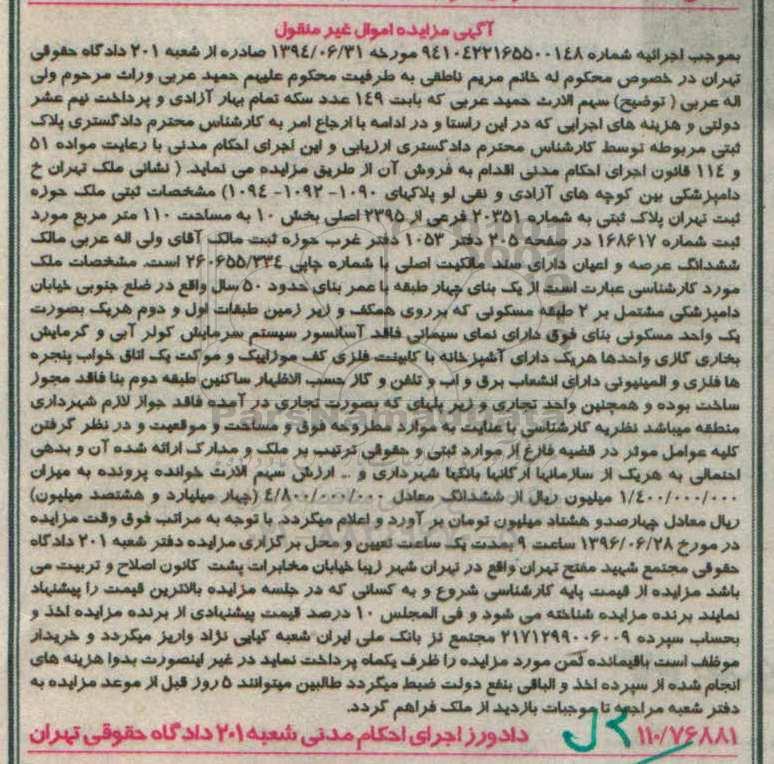 آگهی مزایده اموال غیر منقول
بموجب اجرائیه شماره ۹۴۱۰۴۲۲۱۶۵۵۰۰۱۴۸ مورخه ۱۳۹۴/۰۶/۳۱ صادره از شعبه ۲۰۱ دادگاه حقوقی
تهران در خصوص محکوم له خانم مریم ناطقی به طرفیت محکوم علیهم حمید عربی وراث مرحوم ولی
اله عربی ( توضیح) سهم الارث حمید عربی که بابت ۱۴۹ عدد سکه تمام بهار آزادی و پرداخت نیم عشر
دولتی و هزینه های اجرایی که در این راستا و در ادامه با ارجاع امر به کارشناس محترم دادگستری پلاک
ثبتی مربوطه توسط کارشناس محترم دادگستری ارزیابی و این اجرای احکام مدنی با رعایت مواده ۵۱
و ۱۱۴ قانون اجرای احکام مدنی اقدام به فروش آن از طریق مزایده می نماید. ( نشانی ملک تهران خ
دامپزشکی بین کوچه های آزادی و نقی لو پلاکهای ۱۰۹۰- ۱۰۹۲- ۱۰۹۴) مشخصات ثبتی ملک حوزه
ثبت تهران پلاک ثبتی به شماره ۲۰۳۵۱ فرعی از ۲۳۹۵ اصلی بخش ۱۰ به مساحت ۱۱۰ متر مربع مورد
ثبت شماره ۱۶۸۶۱۷ در صفحه ۲۰۵ دفتر ۱۰۵۳ دفتر غرب حوزه ثبت مالک آقای ولی اله عربی مالک
ششدانگ عرصه و اعیان دارای سند مالکیت اصلی با شماره چاپی ۲۶۰۶۵۵/۳۳۴ است. مشخصات ملک
مورد کارشناسی عبارت است از یک بنای چهار طبقه با عمر بنای حدود ۵۰ سال واقع در ضلع جنوبی خیابان
دامپزشکی مشتمل بر ۲ طبقه مسکونی که برروی همکف و زیر زمین طبقات اول و دوم هریک بصورت
یک واحد مسکونی بنای فوق دارای نمای سیمانی فاقد آسانسور سیستم سرمایش کولر آبی و گرمایش
بخاری گازی واحدها هریک دارای آشپزخانه با کابینت فلزی کف موزاییک و موکت یک اتاق خواب پنجره
ها فلزی و المینیونی دارای انشعاب برق و اب و تلفن و گاز حسب الاظهار ساکنین طبقه دوم بنا فاقد مجوز
ساخت بوده و همچنین واحد تجاری و زیر پلهای که بصورت تجاری در آمده فاقد جواز لازم شهرداری
منطقه میباشد نظریه کارشناسی با عنایت به موارد مطروحه فوق و مساحت و موقعیت و در نظر گرفتن
کلیه عوامل موثر در قضیه فارغ از موارد ثبتی و حقوقی ترتیب بر ملک و مدارک ارائه شده آن و بدهی
احتمالی به هریک از سازمانها ارگانها بانکها شهرداری و ... ارزش سهم الارث خوانده پرونده به میزان
۱/۴۰۰/۰۰۰/۰۰۰ میلیون ریال از ششدانگ معادل ۴/۸۰۰/۰۰۰/۰۰۰ (چهار میلیارد و هشتصد میلیون)
ریال معادل چهارصدو هشتاد میلیون تومان بر آورد و اعلام میگردد. با توجه به مراتب فوق وقت مزایده
در مورخ ۱۳۹۶/۰۶/۲۸ ساعت ۹ بمدت یک ساعت تعیین و محل برگزاری مزایده دفتر شعبه ۲۰۱ دادگاه
حقوقی مجتمع شهید مفتح تهران واقع در تهران شهر زیبا خیابان مخابرات پشت کانون اصلاح و تربیت می
باشد مزایده از قیمت پایه کارشناسی شروع و به کسانی که در جلسه مزایده بالاترین قیمت را پیشنهاد
نمایند برنده مزایده شناخته می شود و فی المجلس ۱۰ درصد قیمت پیشنهادی از برنده مزایده اخذ و
بحساب سپرده ۲۱۷۱۲۹۹۰۰۶۰۰۹ مجتمع نز بانک ملی ایران شعبه کیایی نژاد واریز میگردد و خریدار
موظف است باقیمانده ثمن مورد مزایده را ظرف یکماه پرداخت نماید در غیر اینصورت بدوا هزینه های
انجام شده از سپرده اخذ و الباقی بنفع دولت ضبط میگردد طالبین میتوانند ۵ روز قبل از موعد مزایده به
دفتر شعبه مراجعه تا موجبات بازدید از ملک فراهم گردد.
۱۱۰/۷۶۸۸۱ دادورز اجرای احکام مدنی شعبه ۲۰۱ دادگاه حقوقی تهران